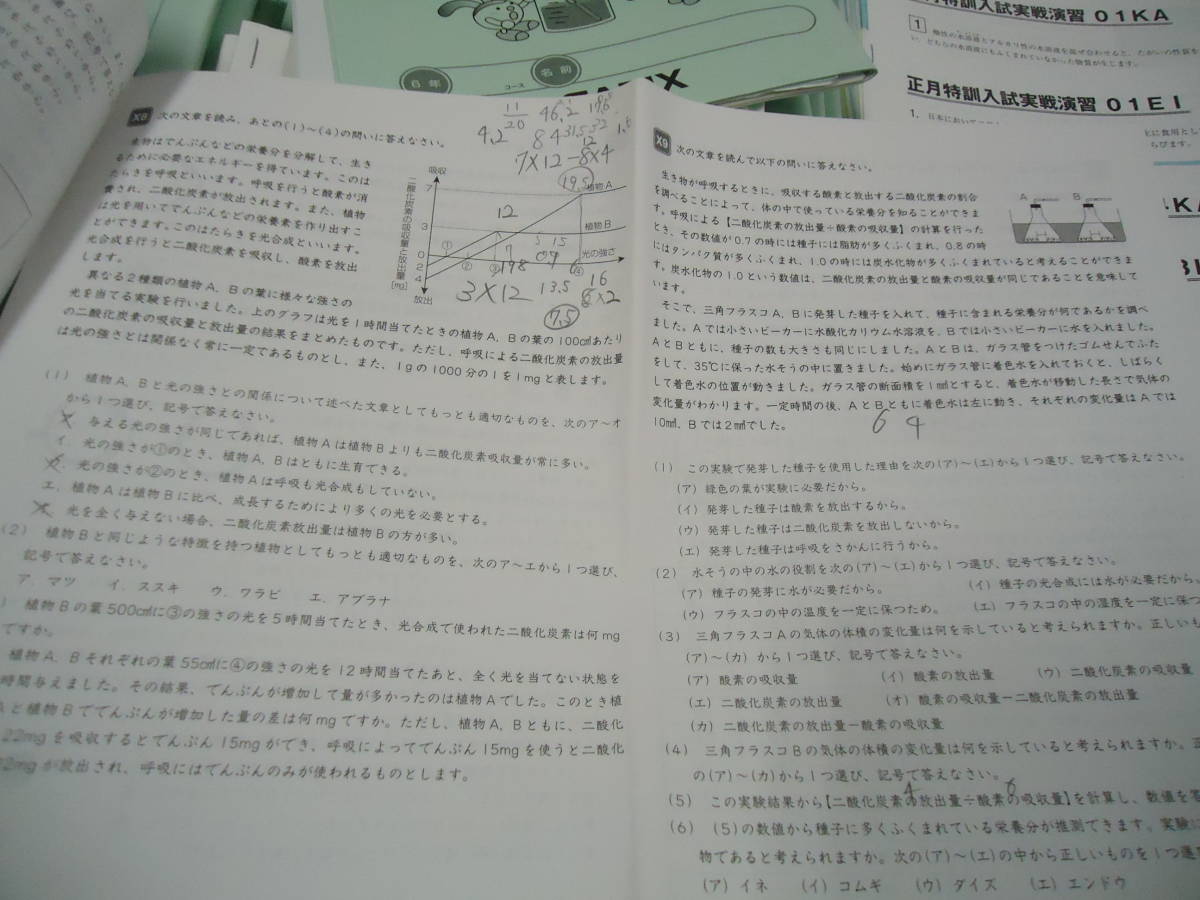 月特訓入試実戦演習 01KA
1
酸性の水溶液とアルカリ性の水溶液を混ぜ合わせると、たがいの性質を
い、どちらの水溶液にもふくまれていなかった物質が生じます。
正月特訓入試実戦演習 01EI
1. 日本において
6年
コース
名前
X8 次の文章を読み、あとの(1)~(4)の問いに答えなさい。
生物はでんぷんなどの栄養分を分解して、生き
るために必要なエネルギーを得ています。このは
たらきを呼吸といいます。呼吸を行うと酸素が消
費され、二酸化炭素が放出されます。また、植物
は光を用いてでんぷんなどの栄養素を作り出すこ
とができます。このはたらきを光合成といいます。
光合成を行うと二酸化炭素を吸収し、酸素を放出
します。
異なる2種類の植物A、Bの葉に様々な強さの
光を当てる実験を行いました。上のグラフは光を1時間当てたときの植物A、Bの葉の100c㎡あたり
の二酸化炭素の吸収量と放出量の結果をまとめたものです。ただし、呼吸による二酸化炭素の放出量
は光の強さとは関係なく常に一定であるものとし、また、1gの1000分の1を1mgと表します。
11/20 46.2
4.2 84
7×12-8×4
19.5
吸収
二酸化炭素の吸収量と放出量
[mg]
7
3
0
2
4
放出
植物A
植物B
光の強さ
① ② ③ ④
12
198
3×12 13.5
16
8×2
7.5
(1) 植物A、Bと光の強さとの関係について述べた文章としてもっとも適切なものを、次のア~オ
から1つ選び、記号で答えなさい。
与える光の強さが同じであれば、植物Aは植物Bよりも二酸化炭素吸収量が常に多い。
イ. 光の強さが①のとき、植物A、Bはともに生育できる。
光の強さが②のとき、植物Aは呼吸も光合成もしていない。
エ. 植物Aは植物Bに比べ、成長するためにより多くの光を必要とする。
光を全く与えない場合、二酸化炭素放出量は植物Bの方が多い。
(2) 植物Bと同じような特徴を持つ植物としてもっとも適切なものを、次のア~エから1つ選び、
記号で答えなさい。
ア. マツ イ. ススキ ウ. ワラビ エ. アブラナ
) 植物Bの葉500c㎡に③の強さの光を5時間当てたとき、光合成で使われた二酸化炭素は何mg
ですか。
植物A、Bそれぞれの葉55c㎡に④の強さの光を12時間当てたあと、全く光を当てない状態を
時間与えました。その結果、でんぷんが増加して量が多かったのは植物Aでした。このとき植
Aと植物Bででんぷんが増加した量の差は何mgですか。ただし、植物A、Bともに、二酸化
22mgを吸収するとでんぷん15mgができ、呼吸によってでんぷん15mgを使うと二酸化
2mgが放出され、呼吸にはでんぷんのみが使われるものとします。
X9 次の文章を読んで以下の問いに答えなさい。
生き物が呼吸するときに、吸収する酸素と放出する二酸化炭素の割合
を調べることによって、体の中で使っている栄養分を知ることができま
す。呼吸による【二酸化炭素の放出量÷酸素の吸収量】の計算を行った
とき、その数値が0.7の時には種子には脂肪が多くふくまれ、0.8の時
にはタンパク質が多くふくまれ、1.0の時には炭水化物が多くふくまれていると考えることができま
す。炭水化物の1.0という数値は、二酸化炭素の放出量と酸素の吸収量が同じであることを意味して
います。
A B
そこで、三角フラスコA、Bに発芽した種子を入れて、種子に含まれる栄養分が何であるかを調べ
ました。Aでは小さいビーカーに水酸化カリウム水溶液を、Bでは小さいビーカーに水を入れました。
AとBともに、種子の数も大きさも同じにしました。AとBは、ガラス管をつけたゴムせんでふた
をして、35℃に保った水そうの中に置きました。始めにガラス管に着色水を入れておくと、しばらく
して着色水の位置が動きました。ガラス管の断面積を1m㎡とすると、着色水が移動した長さで気体の
変化量がわかります。一定時間の後、AとBともに着色水は左に動き、それぞれの変化量はAでは
10㎣、Bでは2㎣でした。
6 4
(1) この実験で発芽した種子を使用した理由を次の(ア)~(エ)から1つ選び、記号で答えなさい。
(ア) 緑色の葉が実験に必要だから。
(イ) 発芽した種子は酸素を放出するから。
(ウ) 発芽した種子は二酸化炭素を放出しないから。
(エ) 発芽した種子は呼吸をさかんに行うから。
(2) 水そうの中の水の役割を次の(ア)~(エ)から1つ選び、記号で答えなさい。
(ア) 種子の発芽に水が必要だから。 (イ) 種子の光合成には水が必要だから。
(ウ) フラスコの中の温度を一定に保つため。 (エ) フラスコの中の湿度を一定に保つ
(3) 三角フラスコAの気体の体積の変化量は何を示していると考えられますか。正しいも
(ア)~(カ) から1つ選び、記号で答えなさい。
(ア) 酸素の吸収量 (イ) 酸素の放出量 (ウ) 二酸化炭素の吸収量
(エ) 二酸化炭素の放出量 (オ) 酸素の吸収量ー二酸化炭素の放出量
(カ) 二酸化炭素の放出量ー酸素の吸収量
(4) 三角フラスコBの気体の体積の変化量は何を示していると考えられますか。正
の(ア)~(カ)から1つ選び、記号で答えなさい。
4 6
(5) この実験結果から【二酸化炭素の放出量÷酸素の吸収量】を計算し、数値を答
(6) (5)の数値から種子に多くふくまれている栄養分が推測できます。実験に
物であると考えられますか。次の(ア)~(エ)の中から正しいものを1つ選び
(ア) イネ (イ) コムギ (ウ) ダイズ (エ) エンドウ